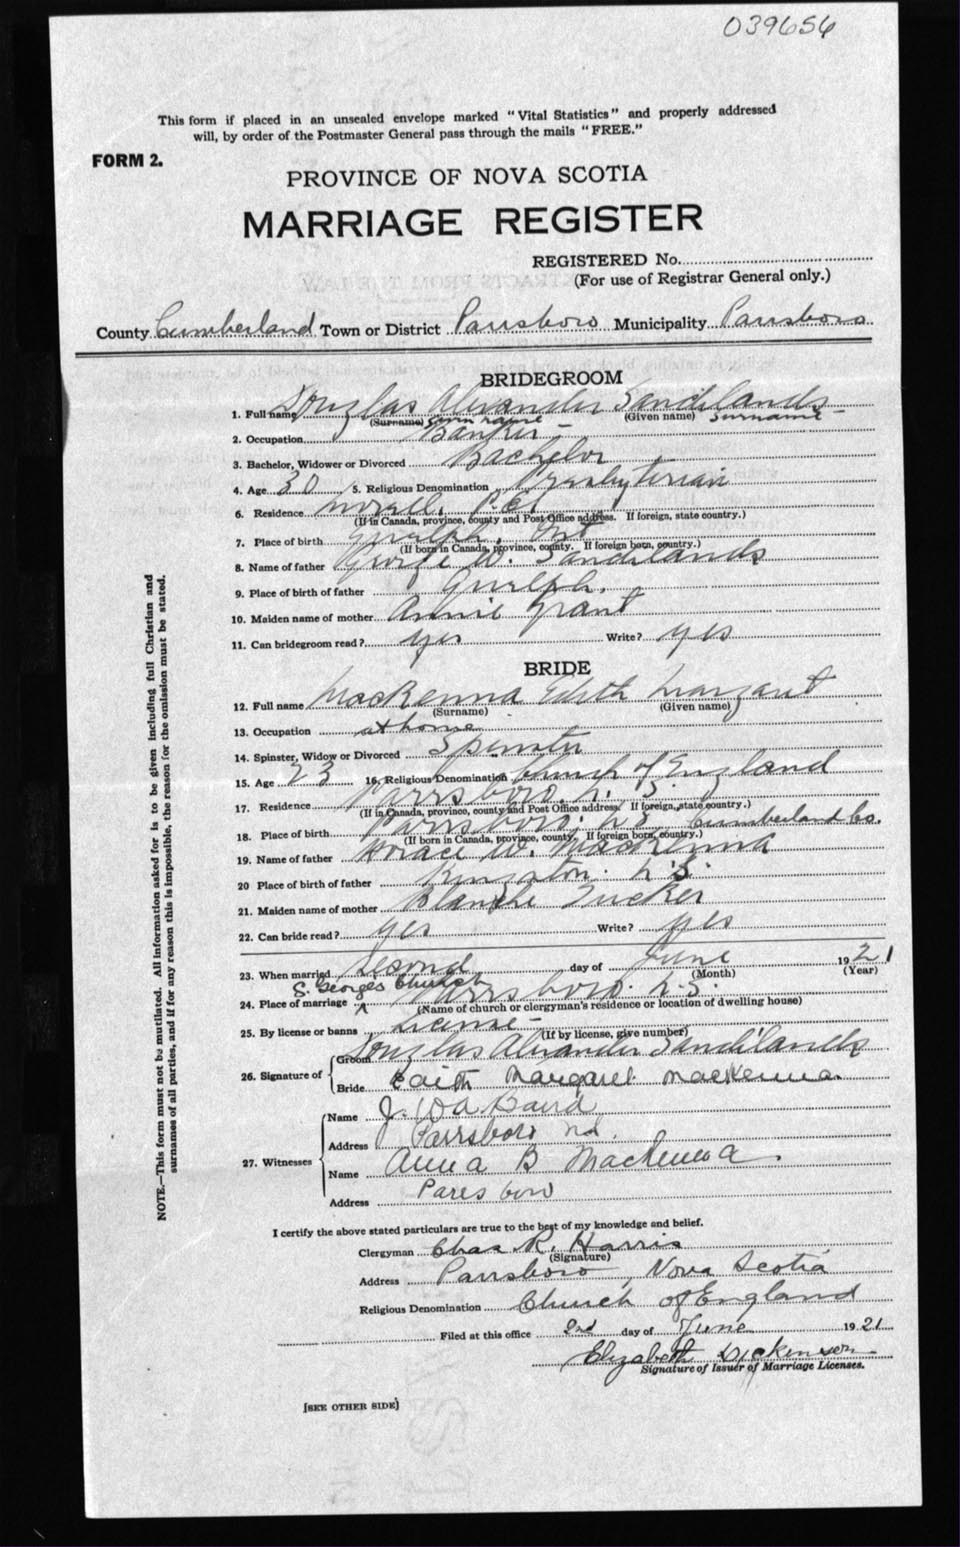 039656
This form if placed in an unsealed envelope marked "Vital Statistics" and properly addressed
will, by order of the Postmaster General pass through the mails "FREE."
FORM 2.
PROVINCE OF NOVA SCOTIA
MARRIAGE REGISTER
REGISTERED No.
(For use of Registrar General only.)
County Cumberland Town or District Parrsboro Municipality Parrsboro
BRIDEGROOM
1. Full name Douglas Alexander Sandilands
(Surname) Given name (Given name) Surname
2. Occupation Banker
3. Bachelor, Widower or Divorced Bachelor
4. Age 30 5. Religious Denomination Presbyterian
6. Residence P.E.I.
(If in Canada, province, county and Post Office address. If foreign, state country.)
7. Place of birth Guelph, Ont
(If born in Canada, province, county. If foreign born, country.)
8. Name of father George W. Sandilands
9. Place of birth of father Guelph.
10. Maiden name of mother Annie Grant
11. Can bridegroom read? yes Write? yes
BRIDE
12. Full name MacKenna Edith Margaret
(Surname) (Given name)
13. Occupation at home
14. Spinster, Widow or Divorced Spinster
15. Age 23 16. Religious Denomination Church of England
17. Residence Parrsboro. N. S.
(If in Canada, province, county and Post Office address. If foreign, state country.)
18. Place of birth Parrsboro. N S Cumberland Co.
(If born in Canada, province, county. If foreign born, country.)
19. Name of father Horace W. MacKenna
20 Place of birth of father N. S.
21. Maiden name of mother Blanche Tucker
22. Can bride read? yes Write? yes
23. When married second day of June 1921
(Month) (Year)
S. Georges Church
24. Place of marriage Parrsboro. N. S.
(Name of church or clergyman's residence or location of dwelling house)
25. By license or banns License
(If by license, give number)
26. Signature of
Groom Douglas Alexander Sandilands
Bride Edith Margaret MacKenna
27. Witnesses
Name J. Baird
Address Parrsboro N.S.
Name Anna B MacKenna
Address Parrsboro
I certify the above stated particulars are true to the best of my knowledge and belief.
Clergyman Chas R. Harris
(Signature)
Address Parrsboro, Nova Scotia
Religious Denomination Church of England
Filed at this office 2nd day of June 1921
Elizabeth Dickenson
Signature of Issuer of Marriage Licenses.
[SEE OTHER SIDE]
NOTE.—This form must not be mutilated. All information asked for is to be given including full Christian and
surnames of all parties, and if for any reason this is impossible, the reason for the omission must be stated.